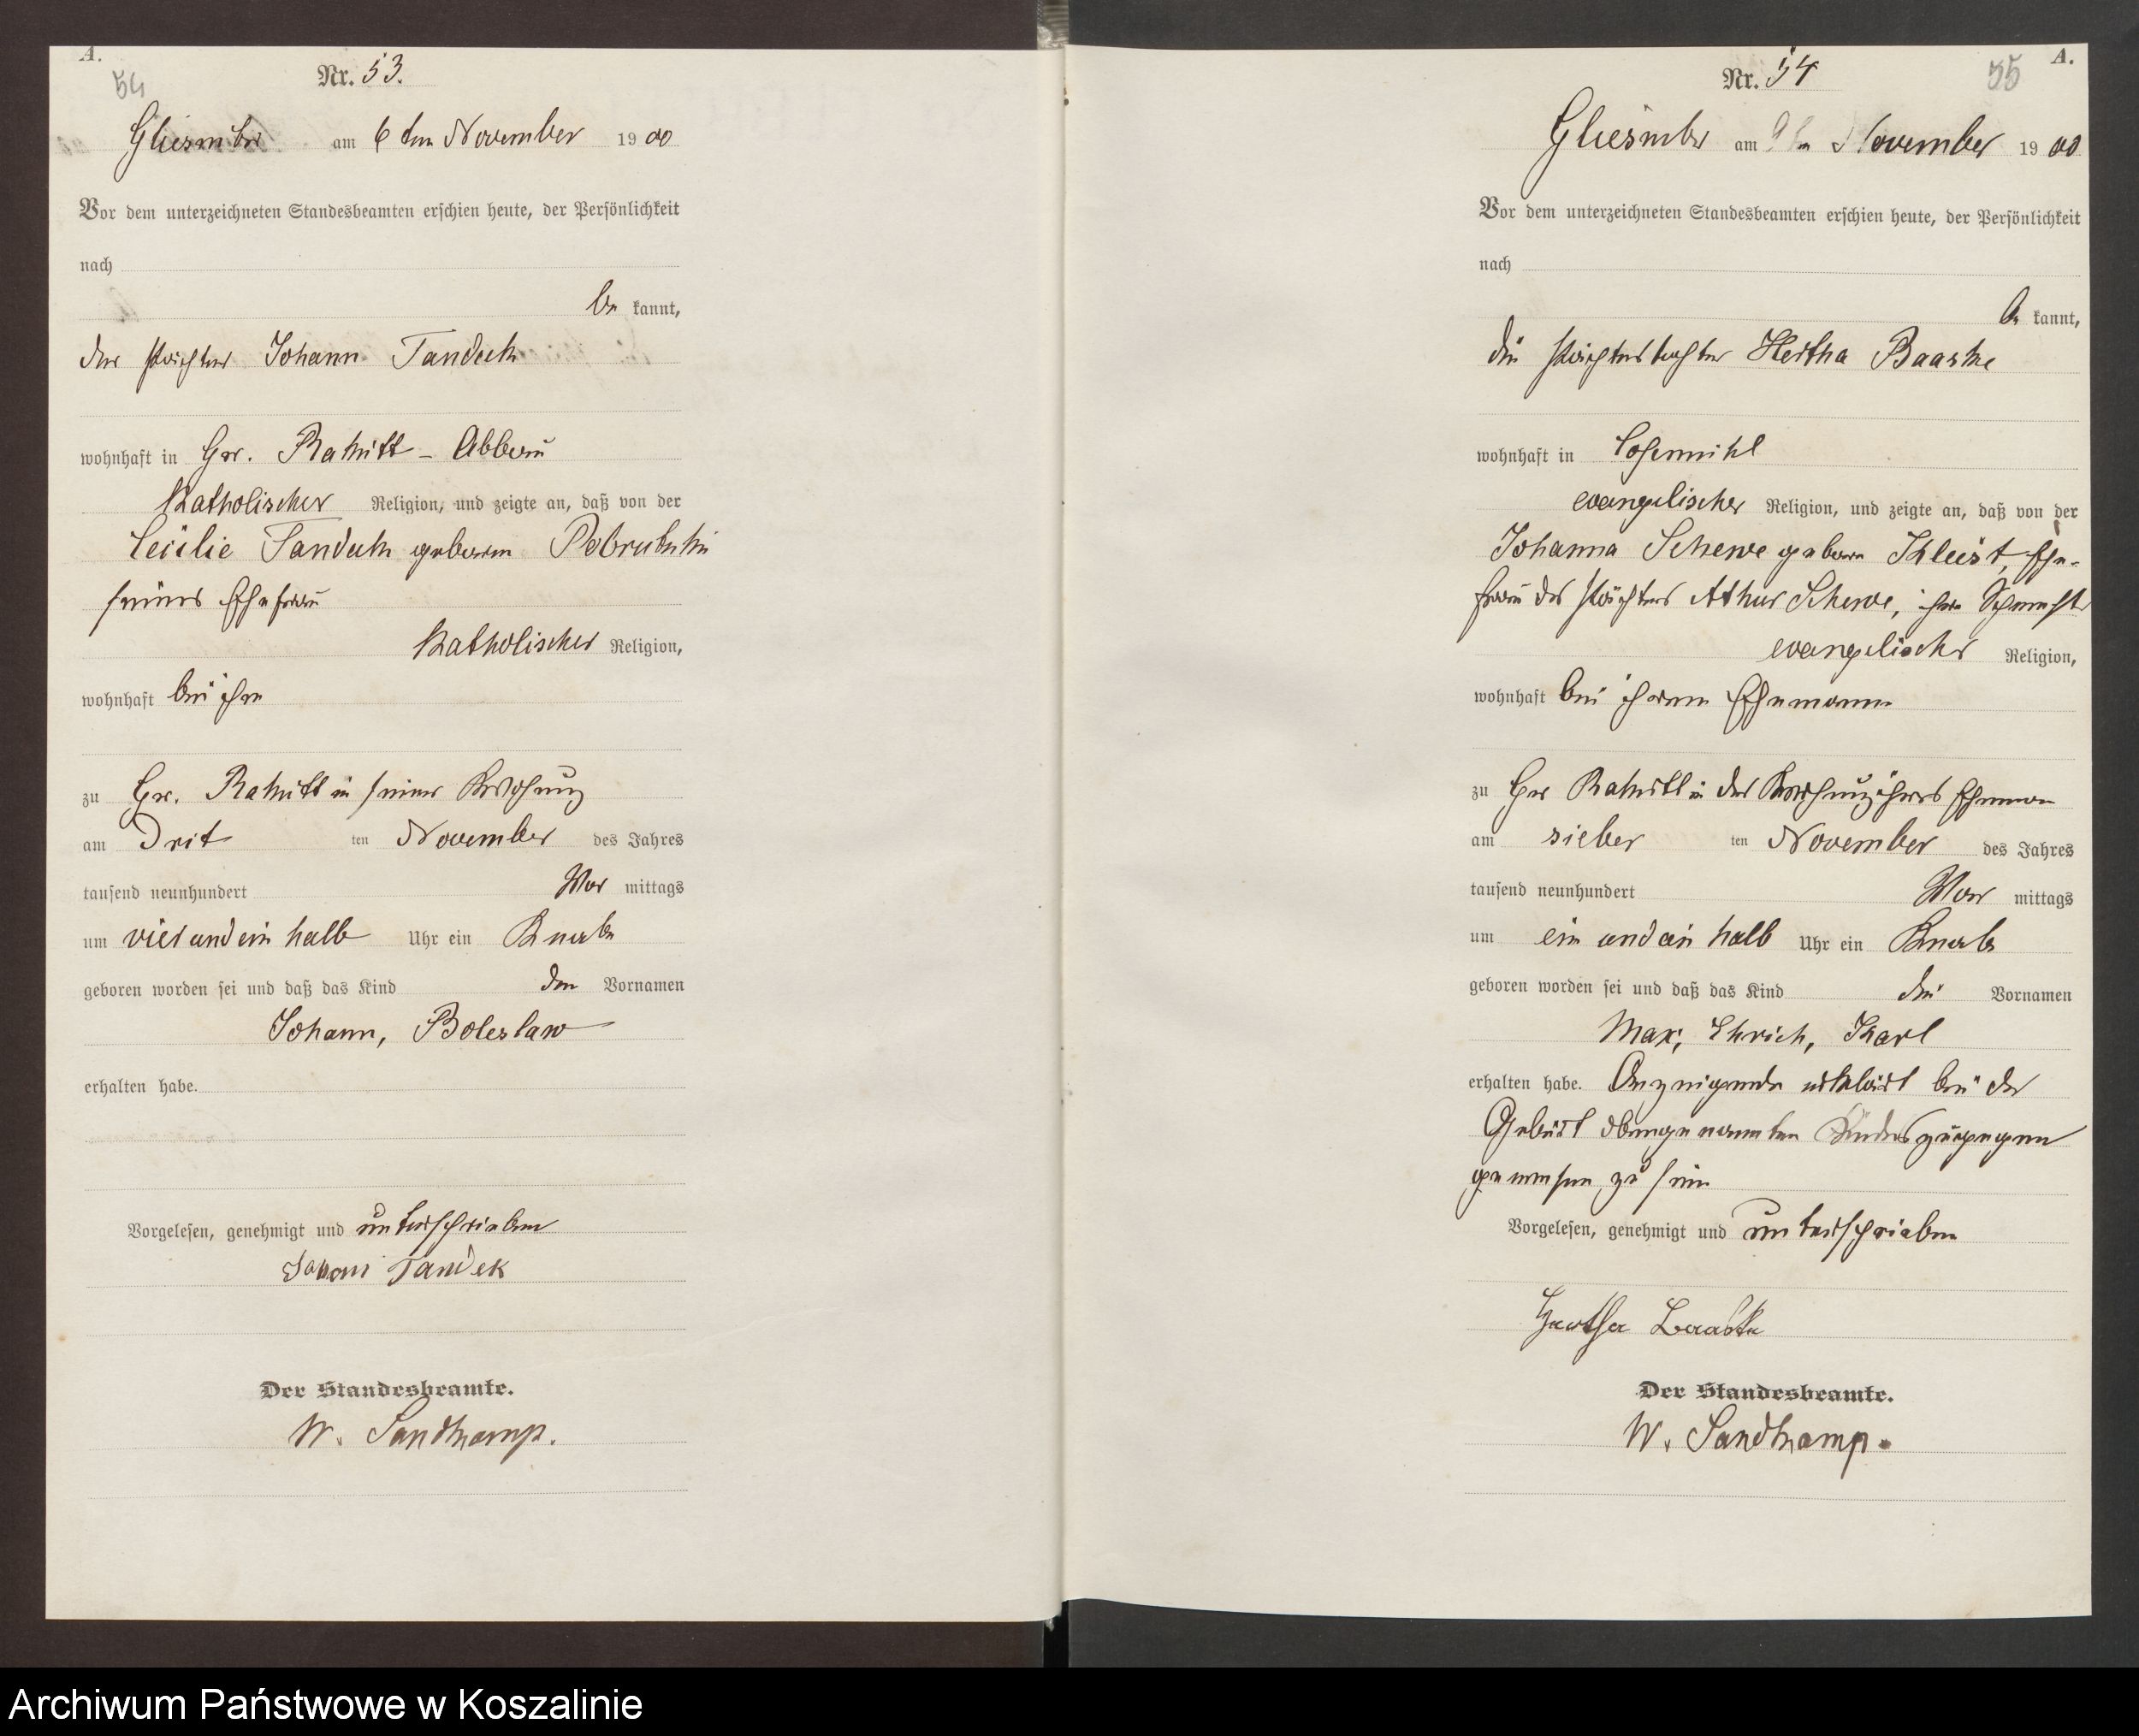 A.
54
Nr. 53.
am 6 ten November 1900
Vor dem unterzeichneten Standesbeamten erschien heute, der Persönlichkeit
nach
be kannt,
der Pächter Johann Tandek
wohnhaft in Gr. Rakitt - Abbau
Katholischer Religion, und zeigte an, daß von der
Cecilie Tandek geboren
seiner Ehefrau
Katholischer Religion,
wohnhaft bei ihm
zu Gr. Rakitt in seiner Wohnung
am Drit ten November des Jahres
tausend neunhundert Vor mittags
um vier und ein halb Uhr ein Knabe
geboren worden sei und daß das Kind den Vornamen
Johann, Boleslaw
erhalten habe.
Vorgelesen, genehmigt und unterschrieben
Tandek
Der Standesbeamte.
W. Sandkamp.
A.
55
Nr. 54
am 9 ten November 1900
Vor dem unterzeichneten Standesbeamten erschien heute, der Persönlichkeit
nach
be kannt,
die Pächterstochter Hertha Baaske
wohnhaft in
evangelischer Religion, und zeigte an, daß von der
Johanna Schewe geboren Kleist, Ehe-
frau des Pächters Athur Schewe, ihre Schwester
evangelischer Religion,
wohnhaft bei ihrem Ehemann
zu Gr Rakitt in der Wohnung ihres Ehemann
am sieben ten November des Jahres
tausend neunhundert Vor mittags
um ein und ein halb Uhr ein Knabe
geboren worden sei und daß das Kind die Vornamen
Max, Ehrich, Karl
erhalten habe. Anzeigende erklärt bei der
Geburt obengenannten Kindes zugegen
gewesen zu sein
Vorgelesen, genehmigt und unterschrieben
Hertha Baaske
Der Standesbeamte.
W. Sandkamp.
Archiwum Państwowe w Koszalinie